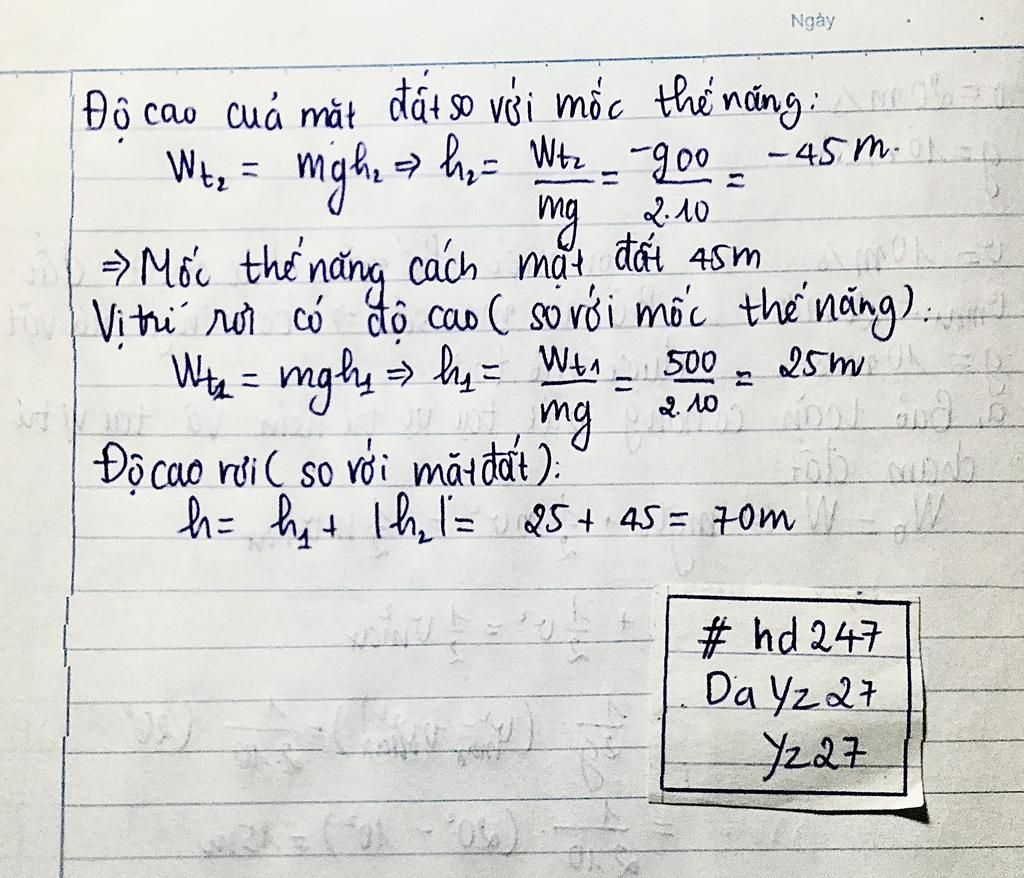 Ngày
Độ cao cuả mặt đất so với mốc thế năng:
Wt₂ = mgh₂ ⇒ h₂ = Wt₂/mg = -900/2.10 = -45m.
⇒ Mốc thế năng cách mặt đất 45m
Vị trí rơi có độ cao ( so với mốc thế năng):
Wt₁ = mgh₁ ⇒ h₁ = Wt₁/mg = 500/2.10 = 25m
Độ cao rơi ( so với mặt đất):
h = h₁ + |h₂| = 25 + 45 = 70m
# hd247
Da Yz27
Yz27